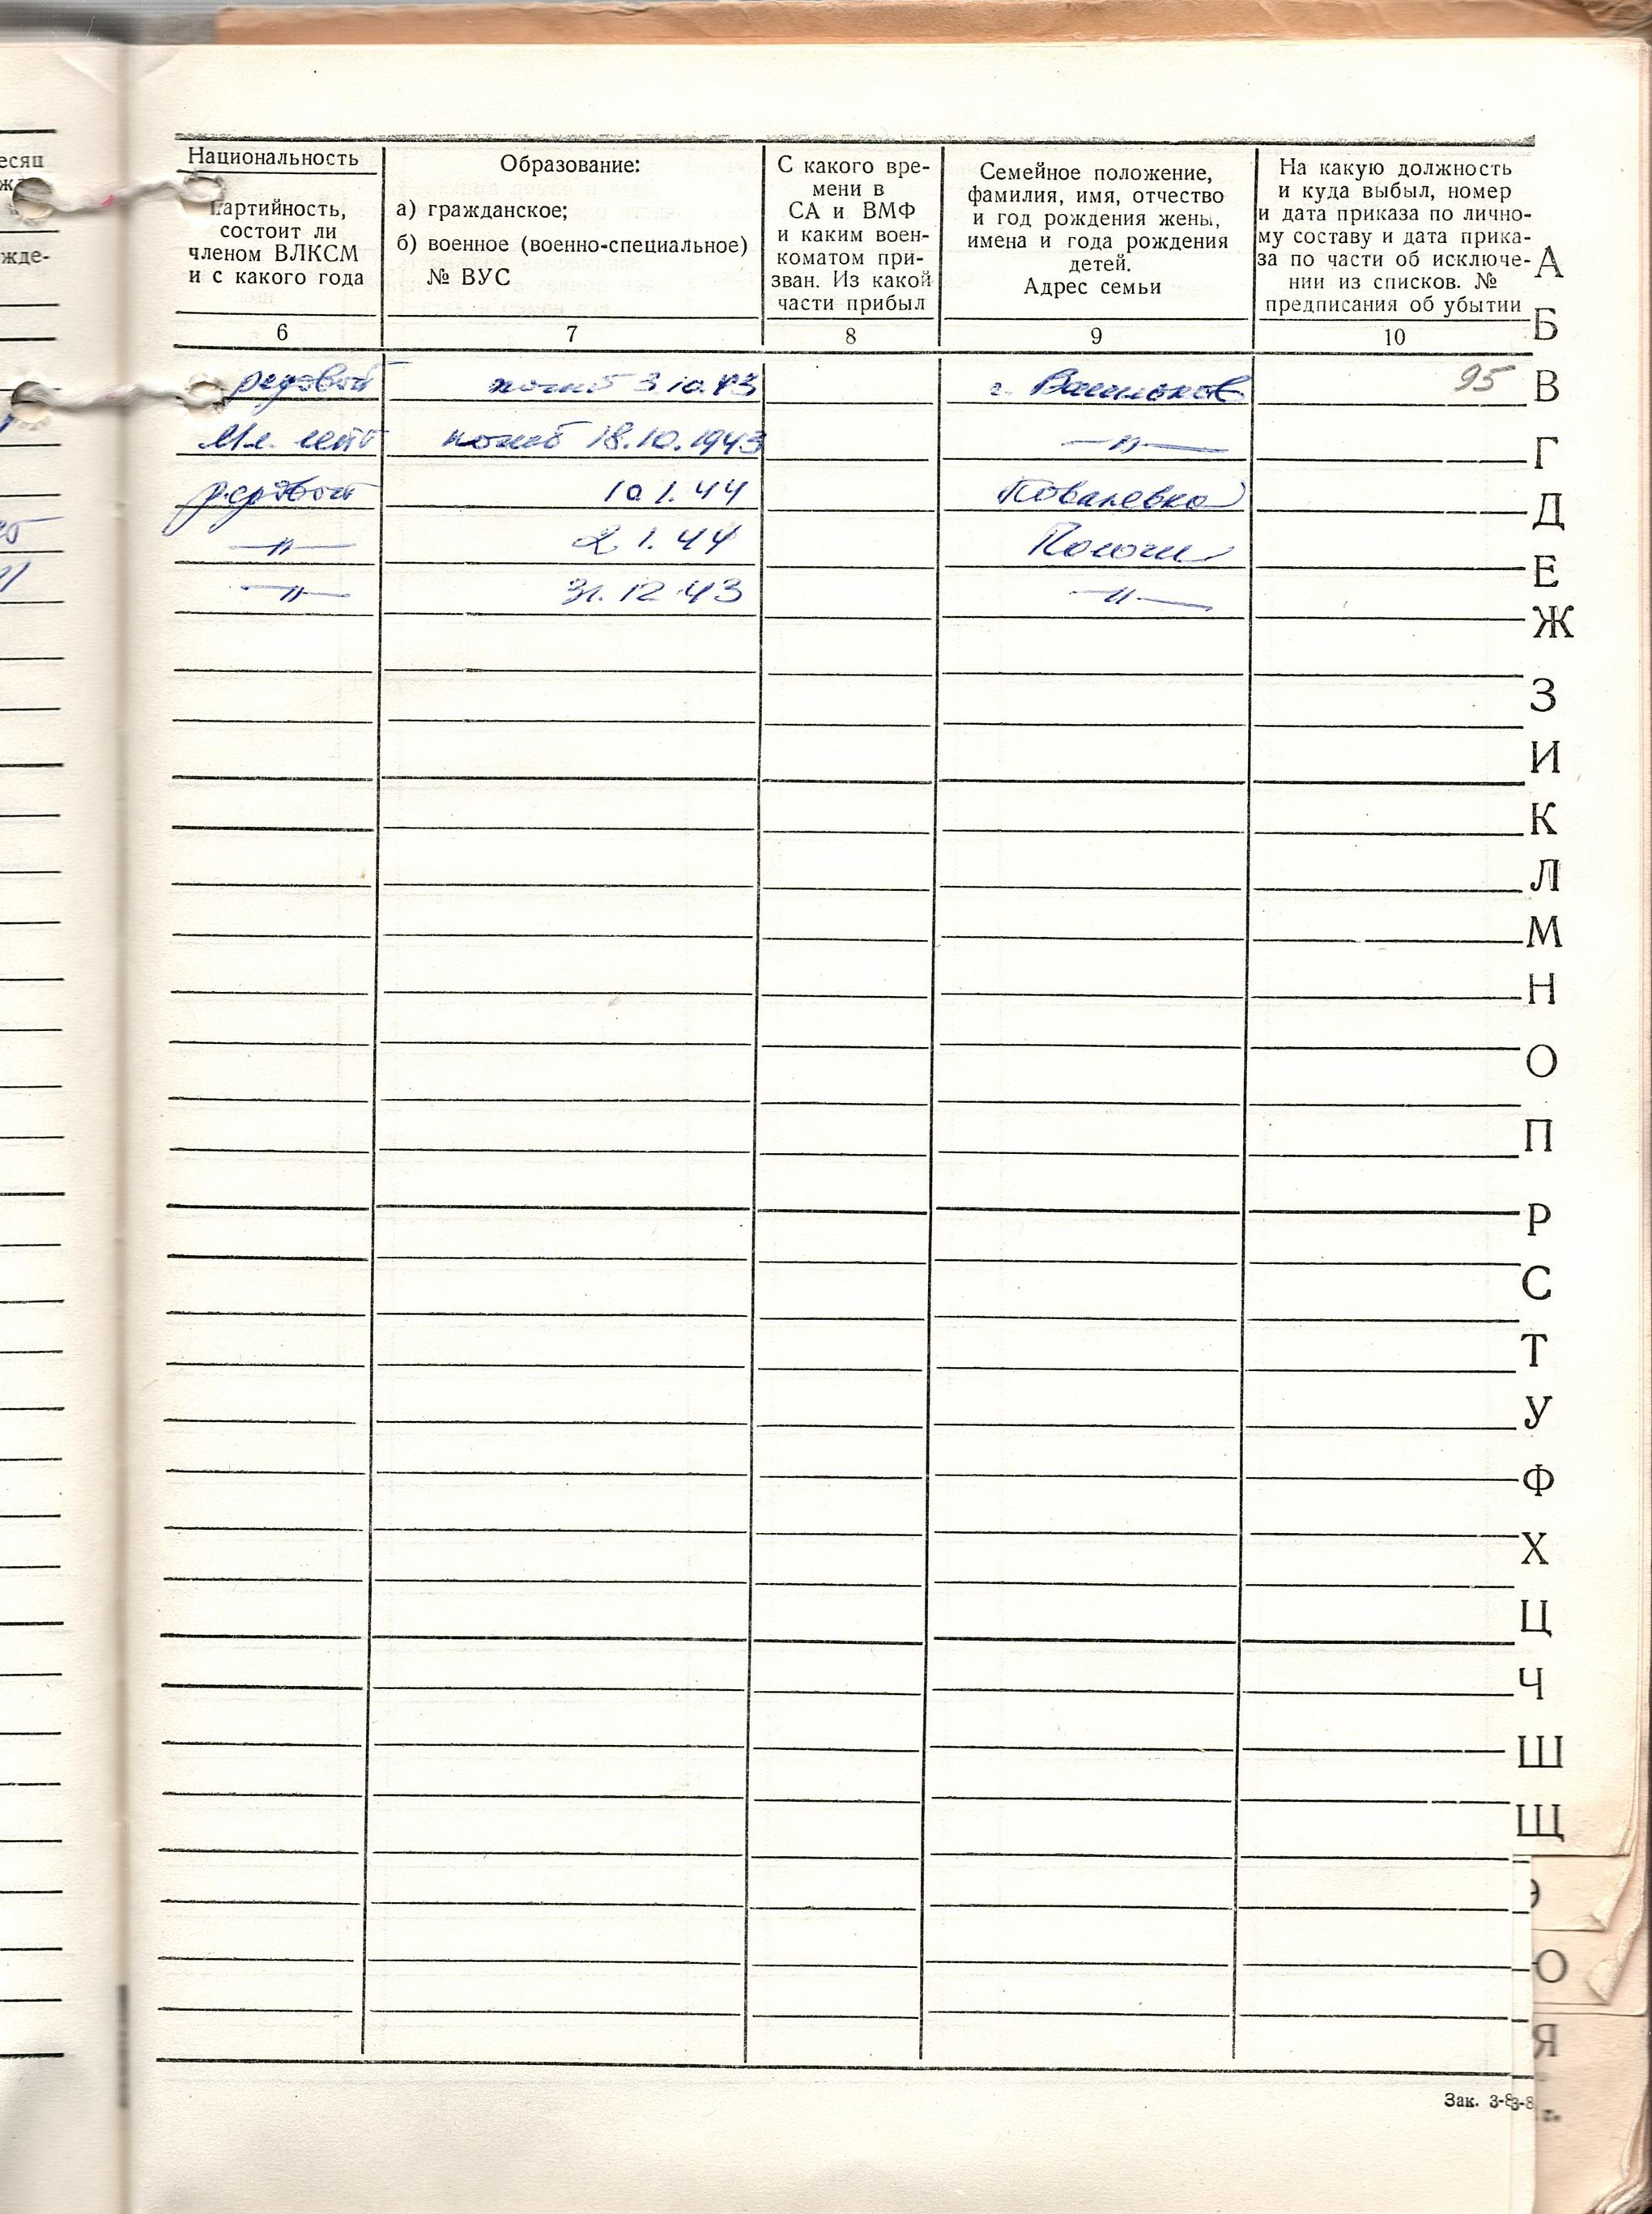 есяц
жде-
Национальность
партийность,
состоит ли
членом ВЛКСМ
и с какого года
Образование:
а) гражданское;
б) военное (военно-специальное)
№ ВУС
С какого вре-
мени в
СА и ВМФ
и каким воен-
коматом при-
зван. Из какой
части прибыл
Семейное положение,
фамилия, имя, отчество
и год рождения жены,
имена и года рождения
детей.
Адрес семьи
На какую должность
и куда выбыл, номер
и дата приказа по лично-
му составу и дата прика-
за по части об исключе-
нии из списков. №
предписания об убытии
6 7 8 9 10
рядовой погиб 3.10.43 г. Васильков 95
Мл. лейт погиб 18.10.1943 —"—
рядовой 10.1.44 Ковалевка
—"— 2.1.44 Пологи
—"— 31.12.43 —"—
А
Б
В
Г
Д
Е
Ж
З
И
К
Л
М
Н
О
П
Р
С
Т
У
Ф
Х
Ц
Ч
Ш
Щ
Э
Ю
Я
Зак. 3-8